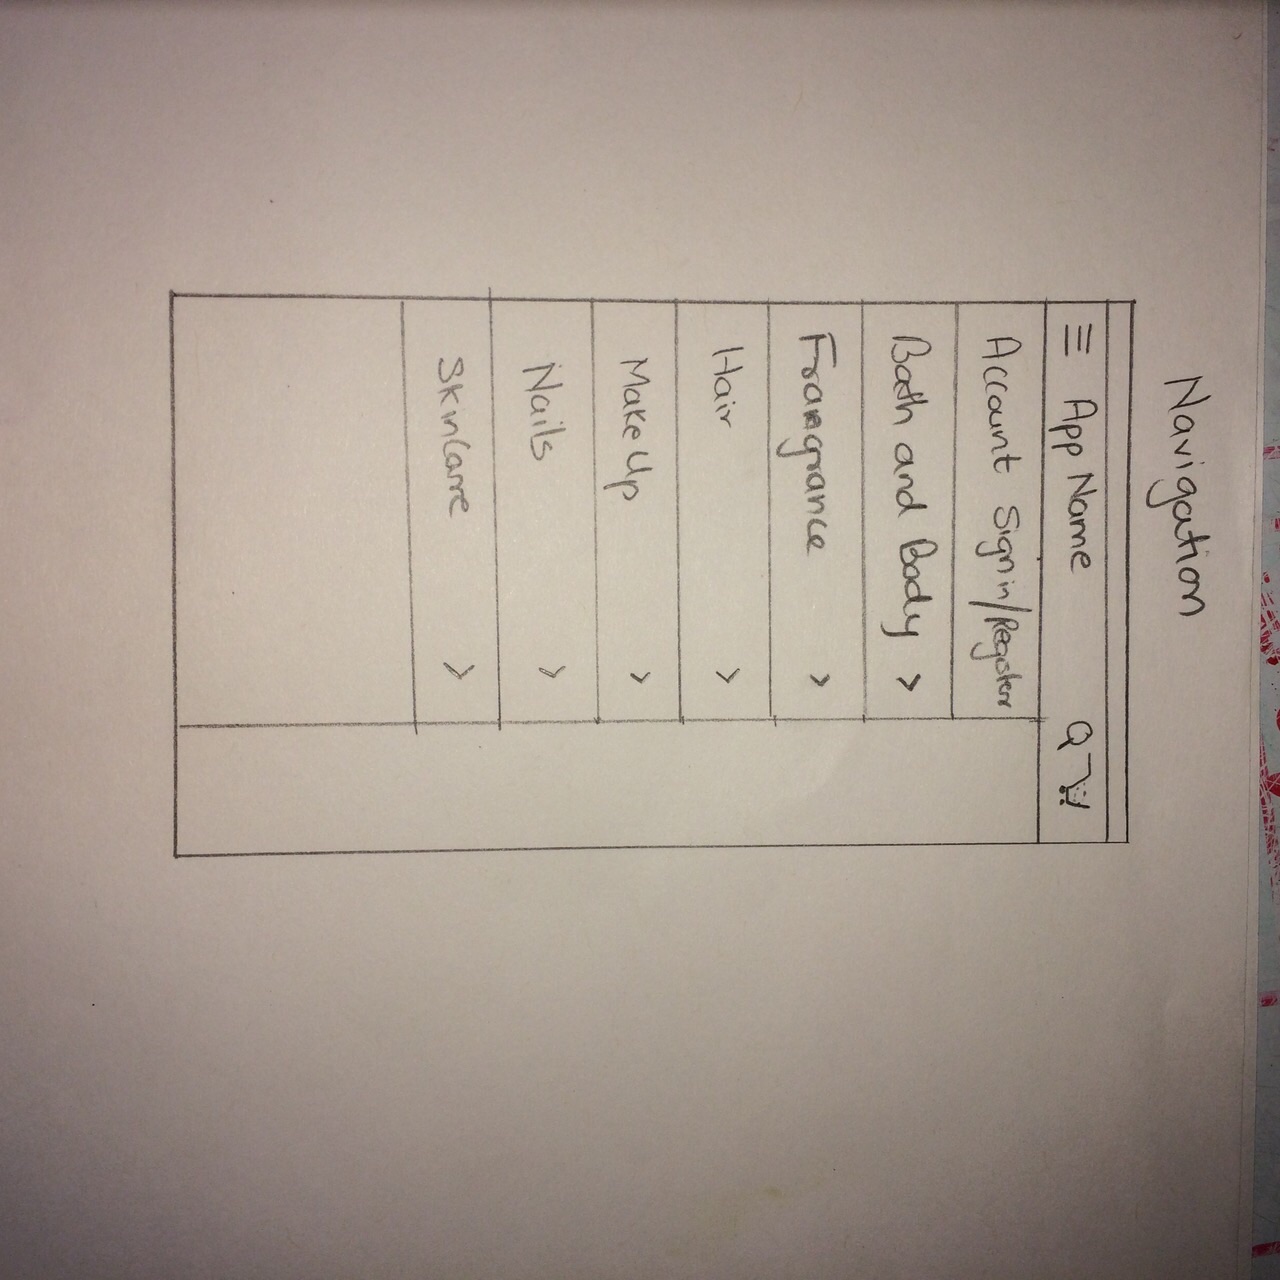 Navigation
≡ App Name
Account Sign in/Register
Bath and Body >
Frangrance >
Hair >
Make Up >
Nails >
Skin Care >